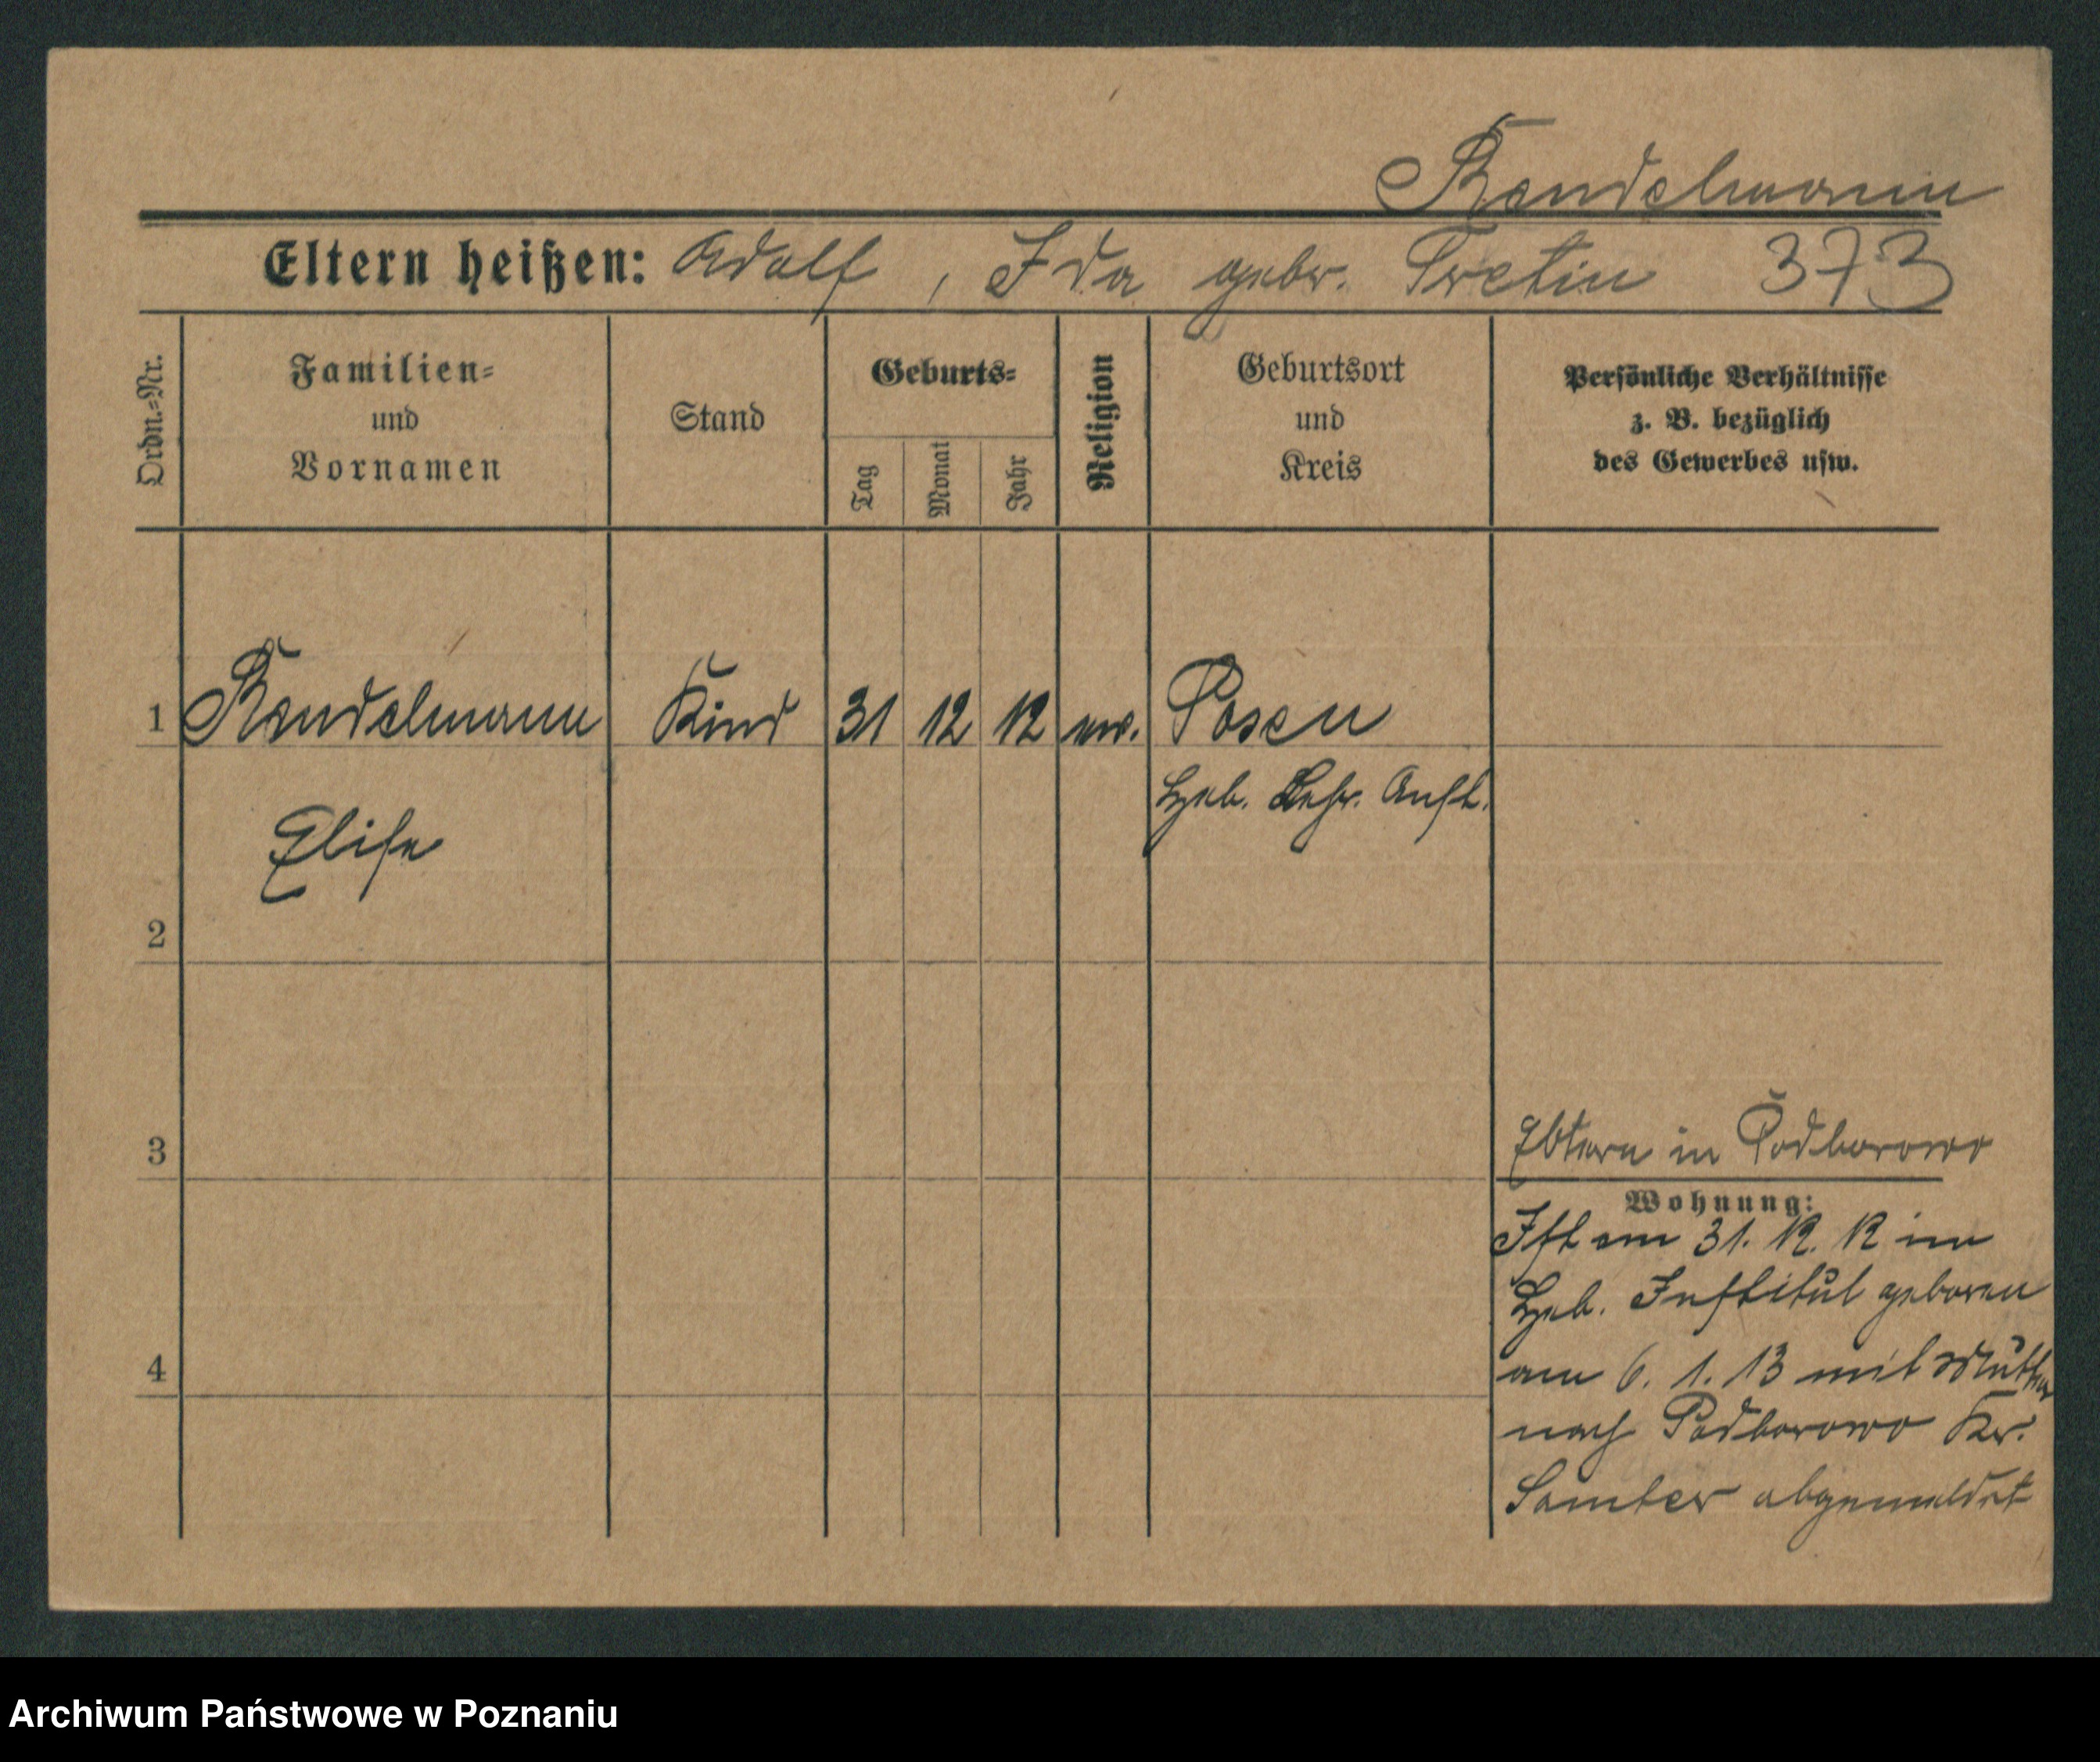 Kendelmann
Eltern heißen: Adolf, Ida gebr. Tretin 373
Ordn.-Nr.
Familien-
und
Vornamen
Stand
Geburts-
Tag
Monat
Jahr
Religion
Geburtsort
und
Kreis
Persönliche Verhältnisse
z. B. bezüglich
des Gewerbes usw.
1 Kendelmann Kind 31 12 12 ev. Posen
Heb. Lehr. Anst.
Elise
2
3
Eltern in Podborowo
Wohnung:
Ist am 31. 12. 12 im
Heb. Institut geboren
4
am 6. 1. 13 mit Mutter
nach Podborowo Kr.
Samter abgemeldet
Archiwum Państwowe w Poznaniu